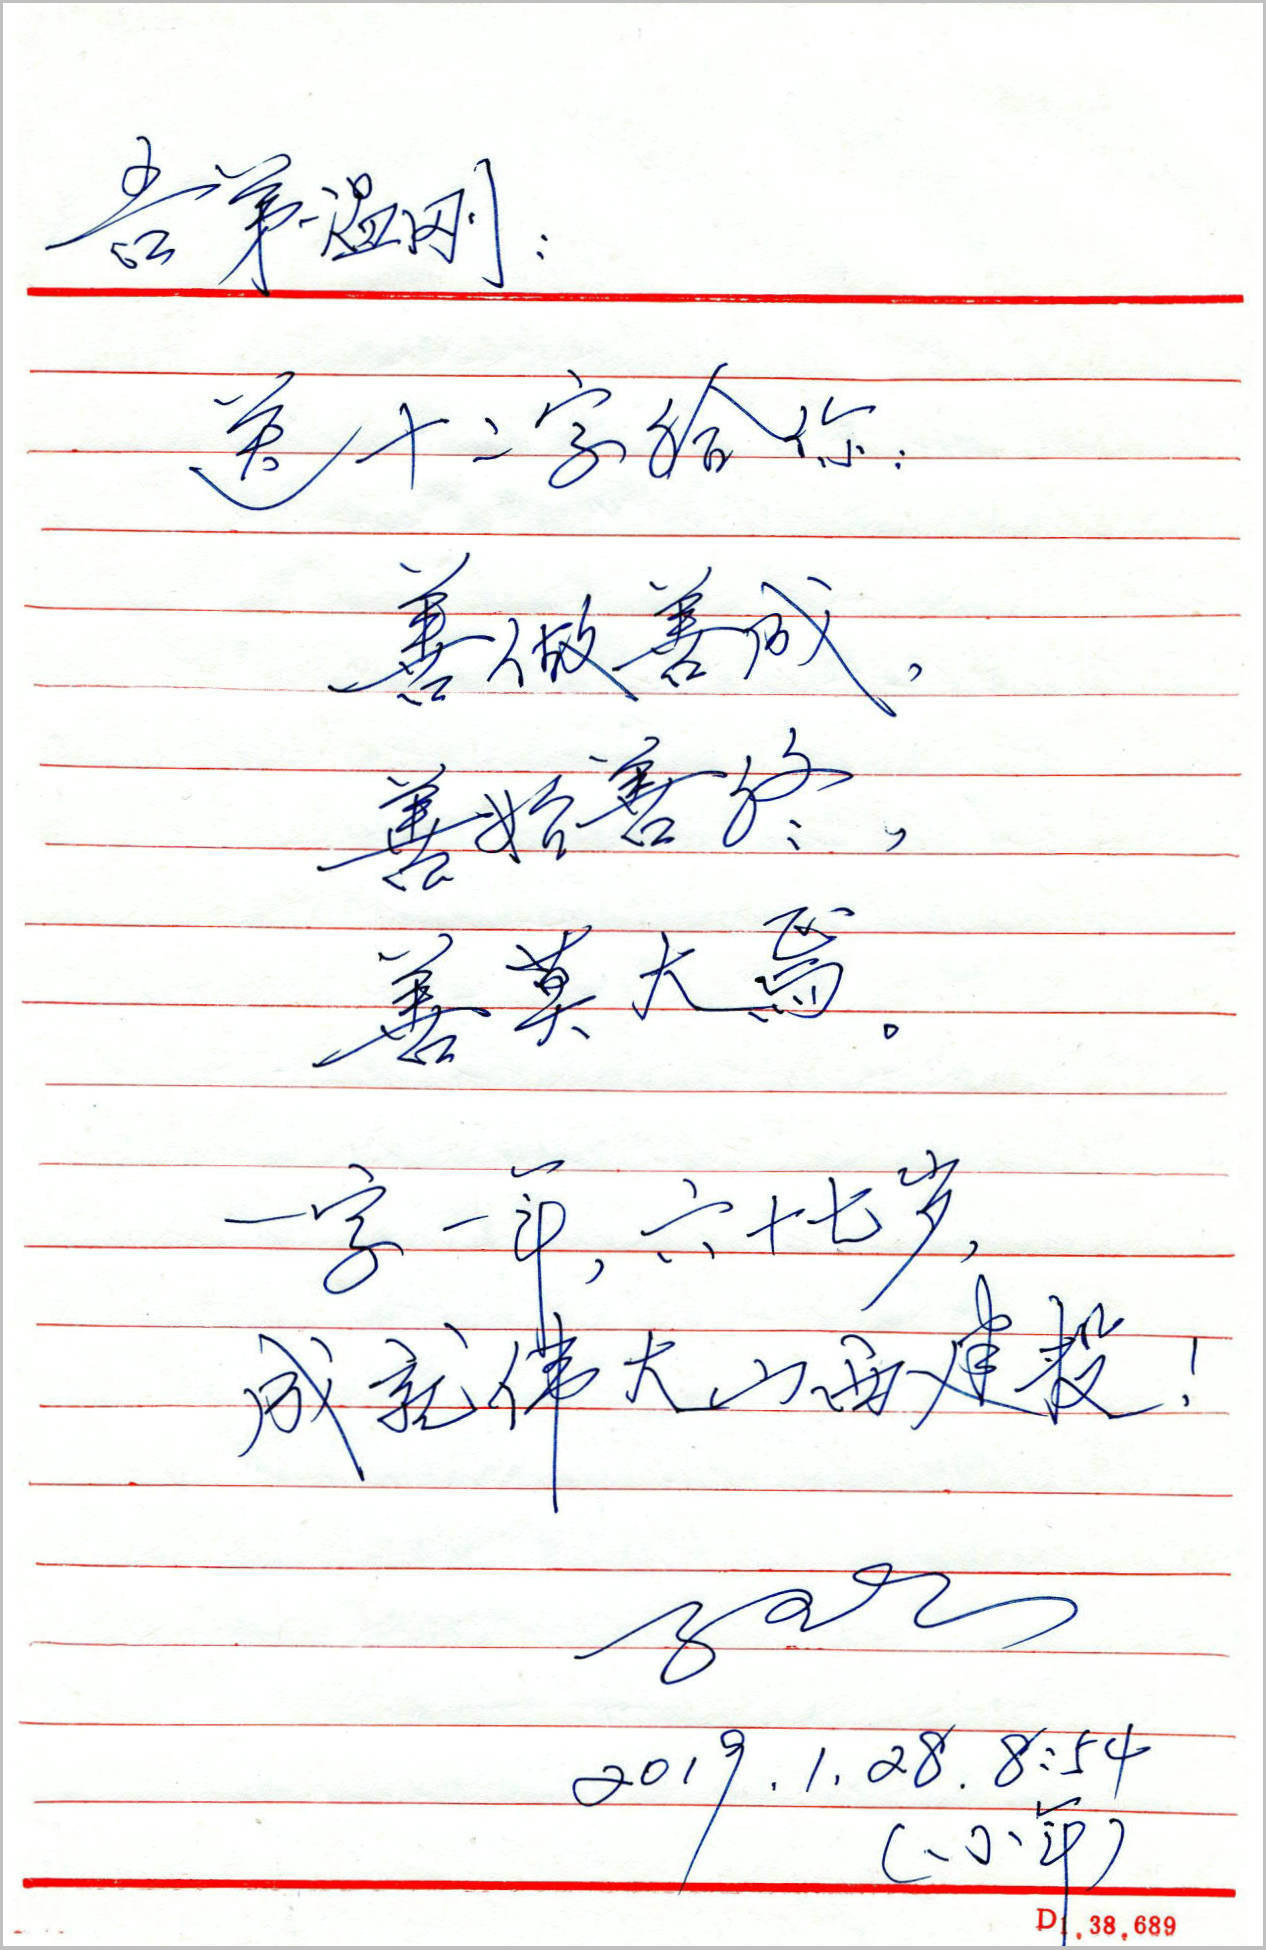 吾弟温刚：
送十二字给你：
善做善成，
善始善终，
善莫大焉。
一字一年，六十七岁，
成就伟大山西建投！
2019.1.28.8:54
（小年）
D1.38.689